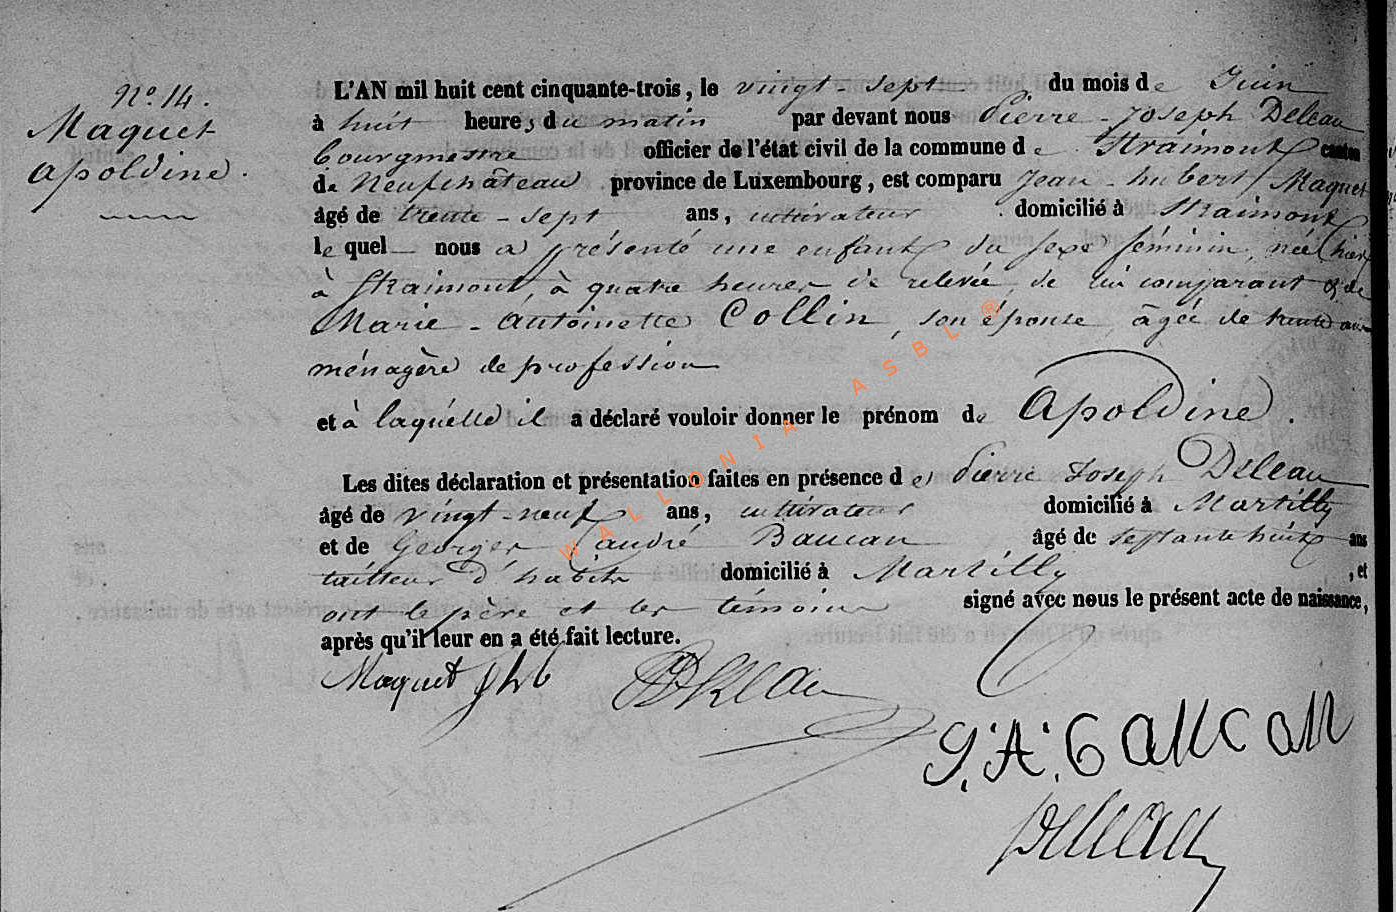 N.º 14.
Maquet
Apoldine.
L'AN mil huit cent cinquante-trois, le vingt-sept du mois de Juin
à huit heures du matin par devant nous Pierre-Joseph Deleau
bourgmestre officier de l'état civil de la commune de Straimont canton
de Neufchâteau province de Luxembourg, est comparu Jean-hubert Maquet
âgé de trente-sept ans, cultivateur domicilié à Straimont
lequel nous a présenté une enfant du sexe féminin, née hier
à Straimont, à quatre heures de relevée, de lui comparant & de
Marie-Antoinette Collin, son épouse, âgée de trente ans
ménagère de profession
et à laquelle il a déclaré vouloir donner le prénom de Apoldine.
Les dites déclaration et présentation faites en présence de Pierre Joseph Deleau
âgé de vingt-neuf ans, cultivateur domicilié à Martilly
et de Georges André Baucau âgé de septante huit ans
tailleur d'habits domicilié à Martilly, et
ont le père et les témoins signé avec nous le présent acte de naissance,
après qu'il leur en a été fait lecture.
Maquet jhb Deleau
G. A. Baucau
Deleau
WALLONIA ASBL ®